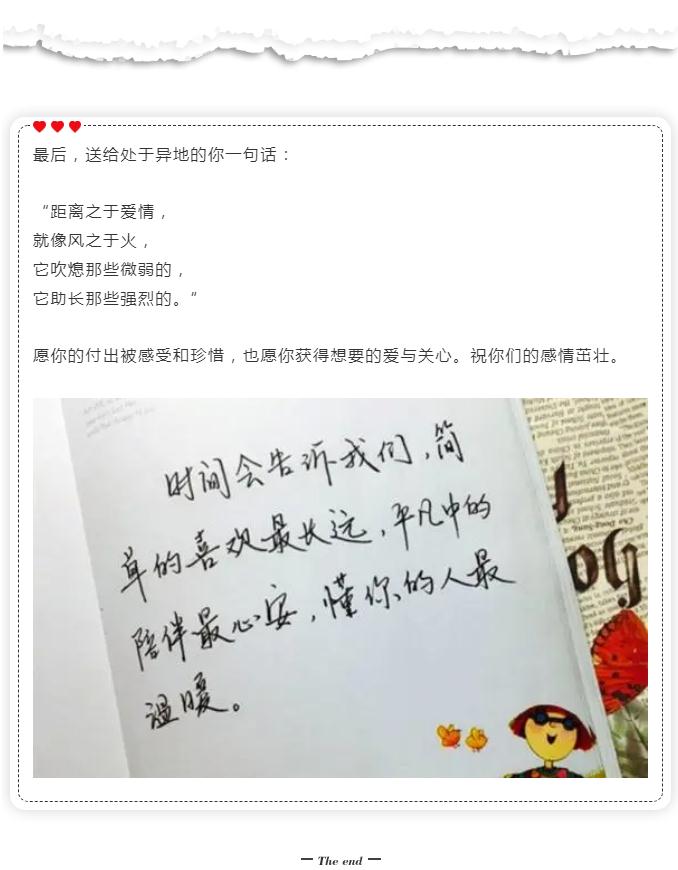 最后，送给处于异地的你一句话：
“距离之于爱情，
就像风之于火，
它吹熄那些微弱的，
它助长那些强烈的。”
愿你的付出被感受和珍惜，也愿你获得想要的爱与关心。祝你们的感情茁壮。
时间会告诉我们，简
单的喜欢最长远，平凡中的
陪伴最心安，懂你的人最
温暖。
The end